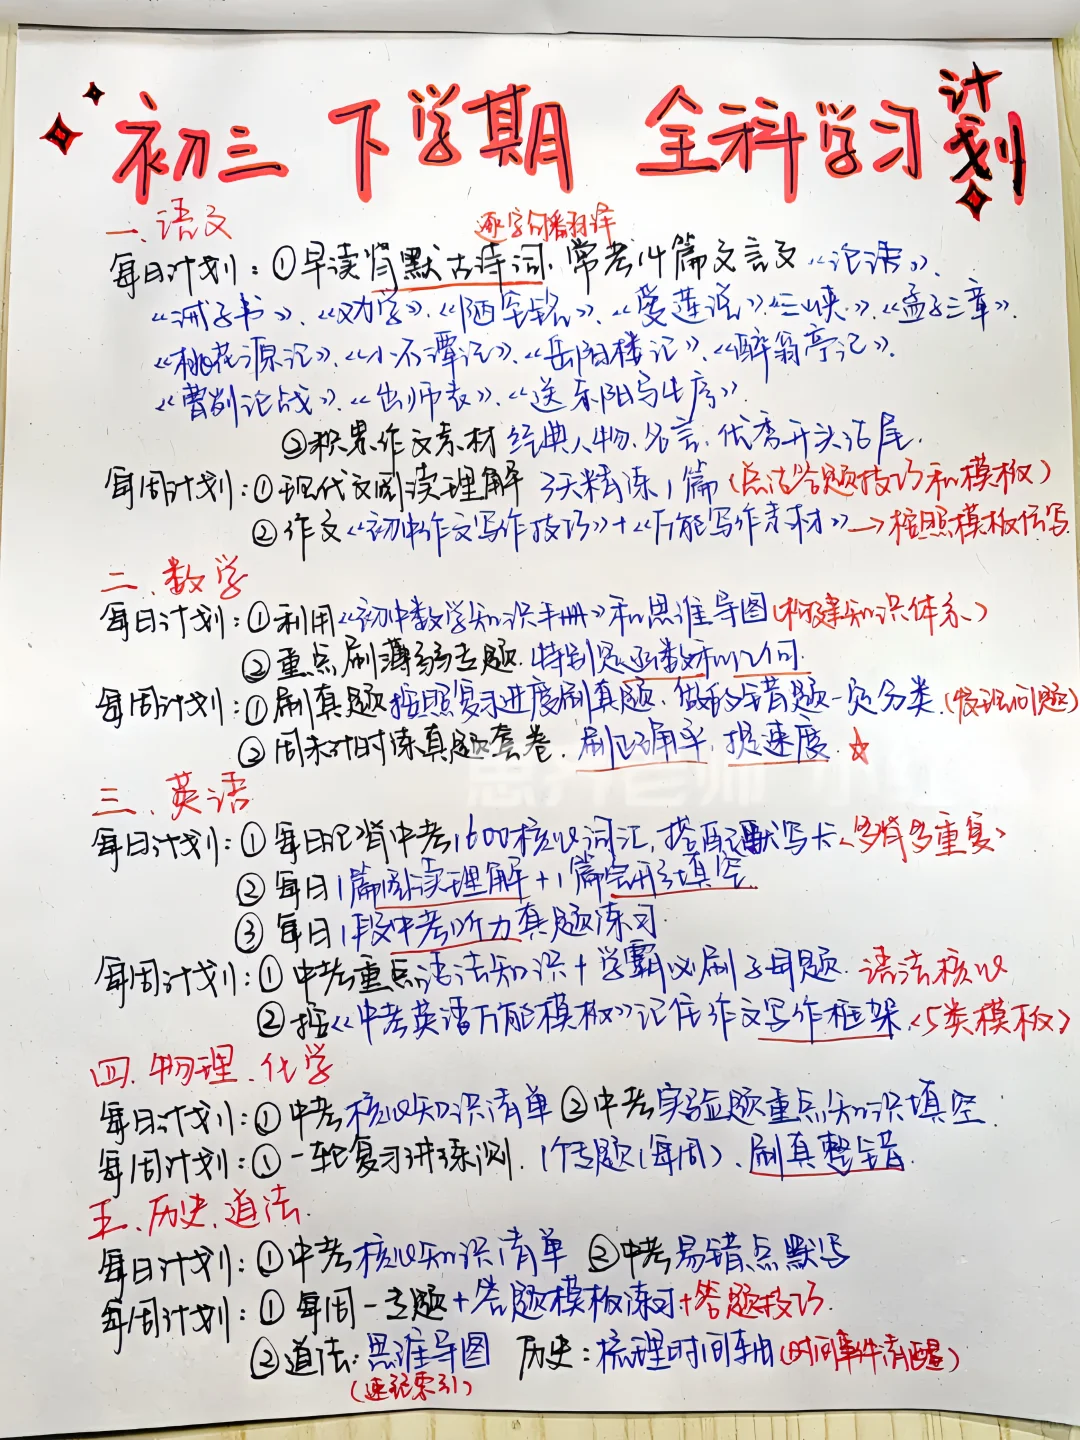 初三 下学期 全科学习计划
一、语文
逐字句翻译
每日计划：①早读背默古诗词、常考14篇文言文《论语》、
《诫子书》、《劝学》、《陋室铭》、《爱莲说》、《三峡》、《孟子三章》、
《桃花源记》、《小石潭记》、《岳阳楼记》、《醉翁亭记》、
《曹刿论战》、《出师表》、《送东阳马生序》.
②积累作文素材 经典人物、名言、优秀开头结尾.
每周计划：①现代文阅读理解 3天精练1篇（总结答题技巧和模板）
②作文《初中作文写作技巧》+《万能写作素材》→按照模板仿写.
二、数学
每日计划：①利用《初中数学知识手册》和思维导图（构建知识体系）
②重点刷薄弱专题.特别是函数和几何.
每周计划：①刷真题按照复习进度刷真题.做的错题一定分类.（发现问题）
②周末计时练真题套卷.刷正确率,提速度.☆
三、英语
每日计划：①每日记背中考1600核心词汇,搭配默写卡<多背多重复>
②每日1篇阅读理解+1篇完形填空.
③每日1段中考听力真题练习.
每周计划：①中考重点语法知识+学霸必刷子母题.语法核心
②按《中考英语万能模板》记住作文写作框架.<5类模板>
四.物理、化学
每日计划：①中考核心知识清单②中考实验题重点知识填空.
每周计划：①一轮复习讲练测.1个专题（每周）、刷真整错.
五、历史、道法.
每日计划：①中考核心知识清单 ②中考易错点默写
每周计划：①每周一专题+答题模板练习+答题技巧.
②道法：思维导图 历史：梳理时间轴（时间事件清醒）
（速记索引）